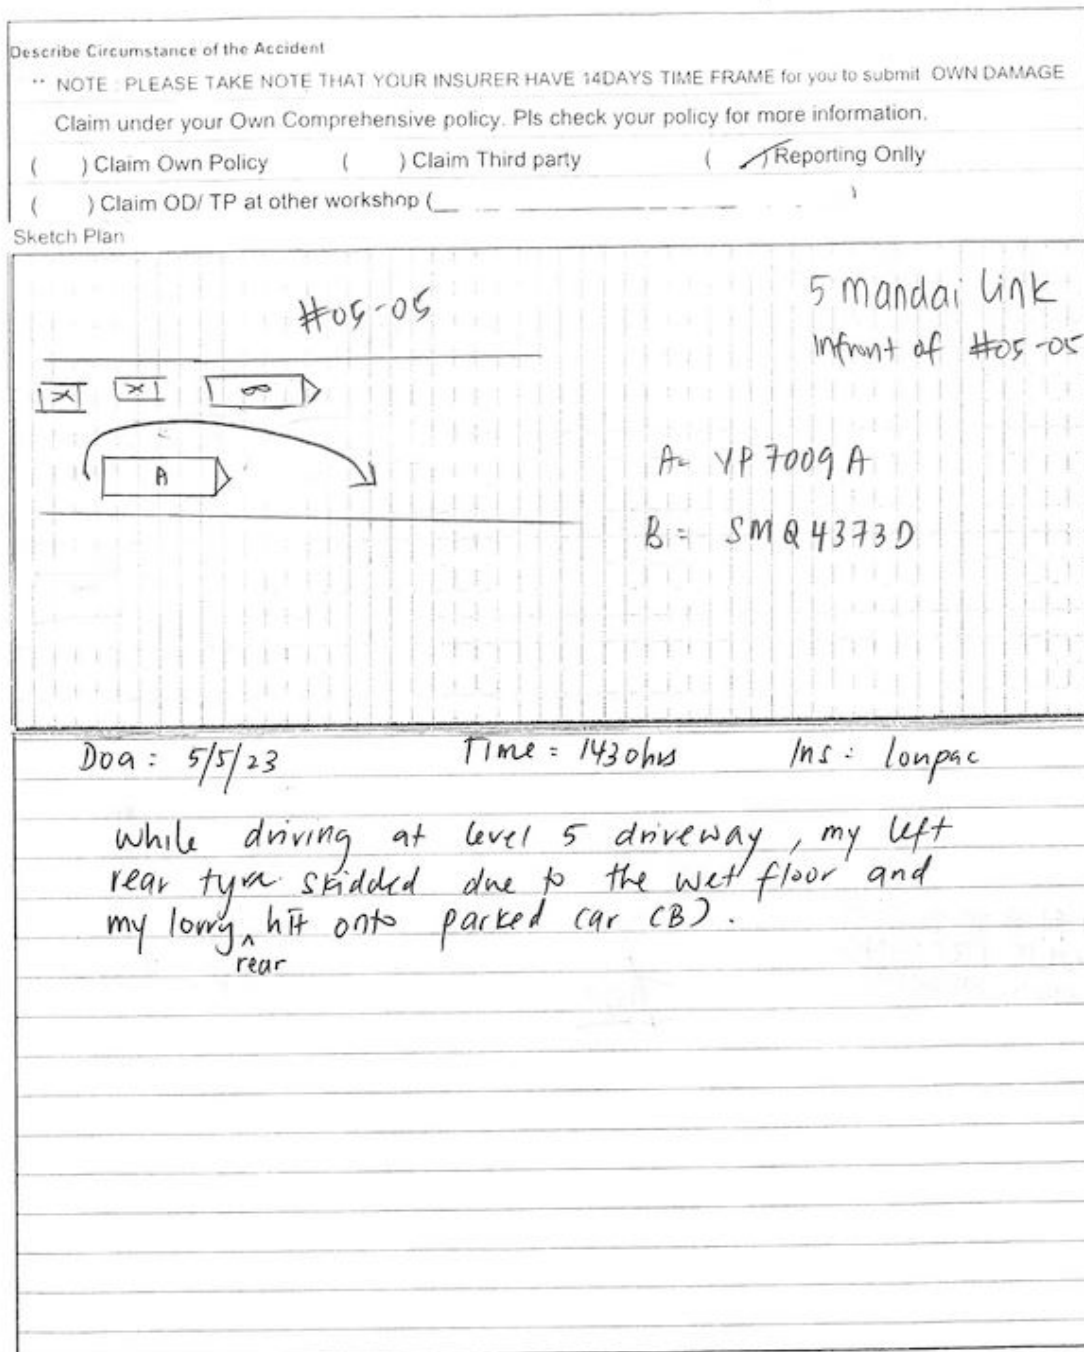 Describe Circumstance of the Accident
** NOTE : PLEASE TAKE NOTE THAT YOUR INSURER HAVE 14DAYS TIME FRAME for you to submit OWN DAMAGE
Claim under your Own Comprehensive policy. Pls check your policy for more information.
( ) Claim Own Policy ( ) Claim Third party ( ) Reporting Onlly
( ) Claim OD/ TP at other workshop ( )
Sketch Plan
#05-05
5 Mandai Link
infront of #05-05
A
A= YP 7009 A
B = SMQ 4373D
Doa: 5/5/23 Time = 1430hrs Ins : lonpac
While driving at level 5 driveway, my left
rear tyre skidded due to the wet floor and
my lorry rear hit onto parked car (B).